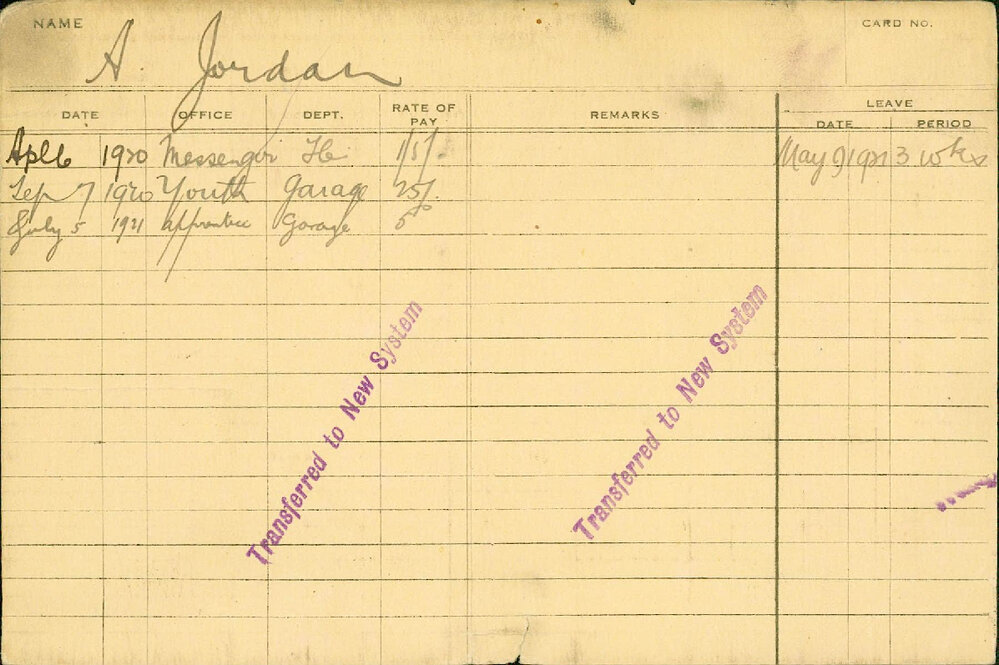 NAME
CARD NO.
A. Jordan
DATE OFFICE DEPT. RATE OF PAY REMARKS LEAVE
DATE PERIOD
Apl 6 1920 Messenger 15/- May 9 1921 3 wks
Sep 7 1920 Youth Garage 25/-
July 5 1921 apprentice Garage
Transferred to New System
Transferred to New System